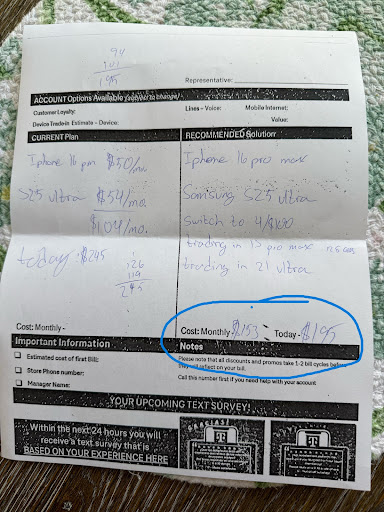 94
101
195
Representative:
ACCOUNT Options Available (subject to change)
Customer Loyalty:
Lines – Voice:
Mobile Internet:
Device Trade in Estimate – Device:
Value:
CURRENT Plan
RECOMMENDED Solution
Iphone 16 pm $50/mo.
Iphone 16 pro max
S25 ultra $54/mo.
Samsung S25 ultra
$104/mo.
switch to 4/$
trading in 15 pro max
today: $245
trading in 21 ultra
126
119
245
Cost: Monthly -
Cost: Monthly - $153 Today - $195
Important Information
Notes
Estimated cost of first Bill:
Please note that all discounts and promos take 1-2 bill cycles before
they will reflect on your bill.
Store Phone number:
Call this number first if you need help with your account
Manager Name:
YOUR UPCOMING TEXT SURVEY!
Within the next 24 hours you will
receive a text survey that is
BASED ON YOUR EXPERIENCE HERE
T
T